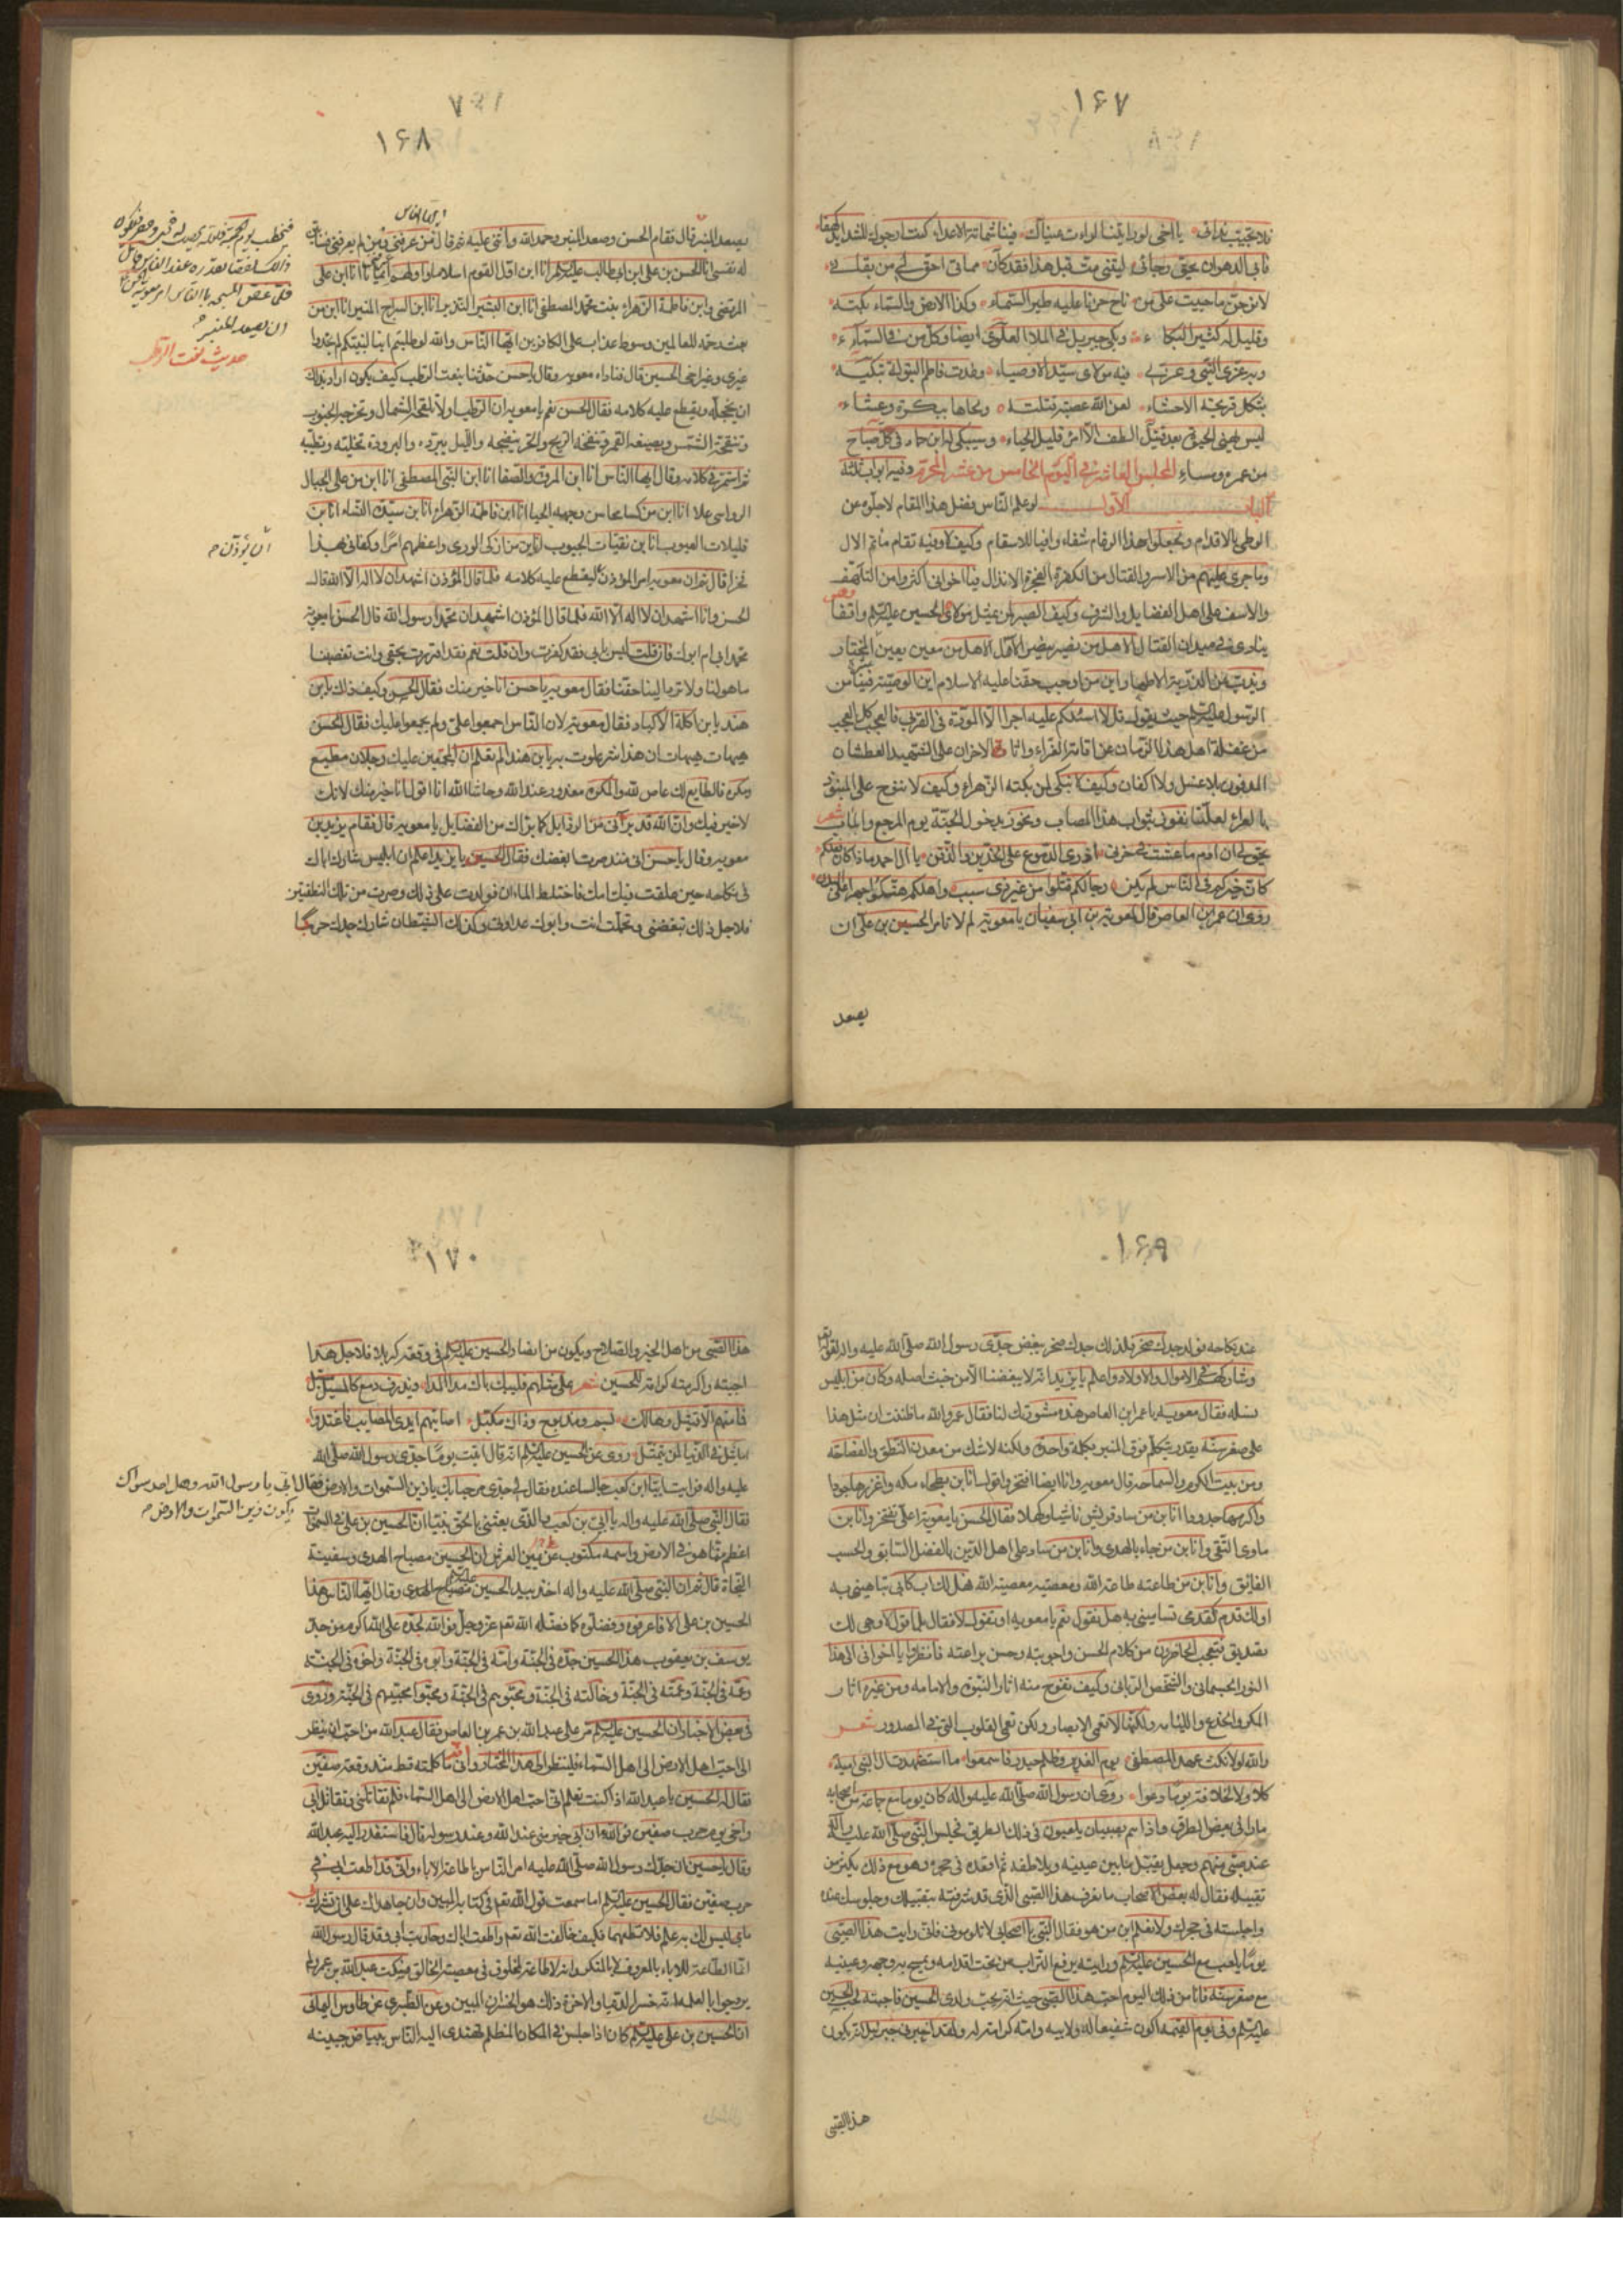 ١۶٧
فلا تجيب نداى يا اخى لو را يتنا لو رات عيناك فينا شماتة الاعداء كنت ارجوك للشدائد كهفا
فابى الدهر ان يحق رجائى ليتنى مت قبل هذا فقد كان مماتى احق لى من بقائى
لا بن حن ما حييت على من ناح حزنا عليه طير السماء وكذا الارض والسماء بكته
وقليل له كثير البكاء وبكى جبريل فى الملا العلوى ايضا وكل من فى السماء
وبه عزى النبى وعزى فيه مولاى سيد الاوصياء وغدت فاطم البتولة تبكيه
بثكل قريحة الاحشاء لعن الله عصبة قتلته ولحاها ببكرة وعشاء
ليس يهنى الحيوة بعد قتيل الطف الا امرء قليل الحياء وسيبكى له ابن حماد فى كل صباح
من عمره ومساء المجلس العاشر فى اليوم الخامس من عشر المحرم وفيه ابواب ثلثة
الباب الاول لو علم الناس فضل هذا المقام لاجلوه عن
الوطى بالاقدام ولجعلوا هذا الرغام شفاء وافيا للاسقام وكيف لا وفيه تقام مآتم الال
وما جرى عليهم من الاسر والقتال من الكفرة الفجرة الانذال فيا اخوانى اكثروا من التأسف
والاسف على اهل الفضايل والشرف وكيف الصبر لمن يمثل مولاى الحسين عليه السلم واقفا
ينادى فى ميدان القتال الا هل من نصير ينصر الال الا هل من معين يعين المختار
ويذب عن الذرية الاطهار اين من اوجب حقنا عليه الاسلام اين الوصية فينا من
الرسول عليه السلم حيث يقول قل لا اسئلكم عليه اجرا الا المودة فى القربى فالعجب كل العجب
من غفلة اهل هذا الزمان عن اقامة العزاء واثارة الاحزان على الشهيد العطشان
المدفون بلا غسل ولا اكفان وكيف لا نبكى لمن بكته الزهراء وكيف لا ننوح على المنبوذ
بالعراء لعلنا نفوز بثواب هذا المصاب ونحوز بدخول الجنة يوم المرجع والمآب شعر
يحق لى ان ادم ما عشت فى حزنى اذرى الدموع على الخدين والذقن يا آل احمد ماذا كان فعلكم
كان خيركم فى الناس لم يكن رجالكم قتلوا من غير ذى سبب واهلكم هتكوا جهرا على البدن
روى ان عمر ابن العاص قال لمعوية بن ابى سفيان يا معوية لم لا تامر الحسن بن على ان
يصعد
١۶٨
يصعد المنبر قال فقام الحسن وصعد المنبر وحمد الله واثنى عليه ثم قال ايها الناس من عرفنى ومن لم يعرفنى فسابين
له نفسى انا الحسن بن على ابن ابى طالب عليه السلم انا ابن اول القوم اسلاما واولهم ايمانا انا ابن على
المرتضى وابن فاطمة الزهراء بنت محمد المصطفى انا ابن البشير النذير انا ابن السراج المنير انا ابن من
بعث رحمة للعالمين وسوط عذاب على الكافرين ايها الناس والله لو طلبتم ابنا لنبيكم لم تجدوا
غيرى وغير اخى الحسين قال فناداه معويه وقال يا حسن حدثنا بنعت الرطب كيف يكون اراد بذلك
ان يخجله ويقطع عليه كلامه فقال الحسن نعم يا معويه ان الرطب اولا تلقحه الشمال وتخرجه الجنوب
وتنضجه الشمس ويصبغه القمر وتنفخه الريح والحر ينضجه والليل يبرده والبرودة تحليه وتطيبه
ثم استمر فى كلامه وقال ايها الناس انا ابن المروة والصفا انا ابن النبى المصطفى انا ابن من على الجبال
الرواسى علا انا ابن من كسا محاسن وجهه الحيا انا ابن فاطمة الزهراء انا بن سيدة النساء انا بن
قليلات العيوب انا بن نقيات الجيوب انا بن من ازكى الورى واعظمهم امرا وكفانى بهذا
فخرا قال ثم ان معويه امر المؤذن ان يؤذن ليقطع عليه كلامه فلما قال المؤذن اشهد ان لا اله الا الله قال
الحسن وانا اشهد ان لا اله الا الله فلما قال المؤذن اشهد ان محمدا رسول الله قال الحسن يا معوية
محمد ابى ام ابوك فان قلت ليس بابى فقد كفرت وان قلت نعم فقد اقررت بحقى وانت تغصبنا
ما هو لنا ولا ترد الينا حقنا فقال معويه يا حسن انا خير منك فقال الحسن وكيف ذلك يا بن
هند يا بن اكلة الاكباد فقال معوية لان الناس اجمعوا على ولم يجمعوا عليك فقال الحسن
هيهات هيهات ان هذا شر علوت به يا بن هند الم تعلم ان المجتمعين عليك رجلان مطيع
ومكره فالطايع لك عاص لله والمكره معذور عند الله وحاشا الله انا اقول انا خير منك لانك
لا خير فيك وان الله قد برأنى من الرذايل كما براك من الفضايل يا معويه قال فقام يزيد بن
معويه وقال يا حسن انى منذ صرت ابغضك فقال الحسن يا يزيد اعلم ان ابليس شارك اباك
فى نكاحه حين علقت فيك امك فاختلط الماءان فولدت على ذلك وصرت من تلك النطفتين
فلاجل ذلك تبغضنى وتحملت انت وابوك عداوتى وكذلك الشيطان شارك جدك حربا
حديث نعت الرطب
ان يؤذن م
١۶٩
عند نكاحه فولد جدك صخر فلذلك جدك صخر يبغض جدى رسول الله صلى الله عليه واله لقوله تع
وشاركهم فى الاموال والاولاد واعلم يا يزيد انه لا يبغضنا الا من خبث اصله وكان من ابليس
نسله فقال معويه يا عمر ابن العاص هذه مشورتك لنا فقال عمرو الله ما ظننت ان مثل هذا
على صغر سنه يقدر يتكلم فوق المنبر بكلمة واحدة ولكنه لا شك من معدن النطق والفصاحة
ومن بيت الكرم والسماحه قال معويه وانا ايضا افتخر واقول انا بن بطحاء مكه واغزرها جودا
واكرمها جدودا انا بن من ساد قريش ناشيا وكهلا فقال الحسن يا معوية اعلى تفتخر وانا بن
ماوى التقى وانا بن من جاء بالهدى وانا بن من ساد على اهل الدين بالفضل السابق والحسب
الفايق وانا بن من طاعته طاعة الله ومعصيته معصية الله فهل لك اب كابى تباهينى به
او لك قدم كقدمى تسامينى به هل تقول نعم يا معويه او تقول لا فقال بل اقول لا وهى لك
تصديق فتعجب الحاضرون من كلام الحسن واجوبته وحسن براعته فانظروا يا اخوانى الى هذا
النور الجسمانى والشخص الربانى وكيف تفوح منه اثار النبوة والامامه ومن غيره اثار
المكر والخدع واللئامه ولكنها لا تعمى الابصار ولكن تعمى القلوب التى فى الصدور شعر
والله لو لا نكث عهد المصطفى يوم الغدير وظلم حيدر فاسمعوا ما استضهدت ال النبى امية
كلا ولا لخلافة يوما دعوا روى ان رسول الله صلى الله عليه واله كان يوما مع جماعة من اصحابه
مارا فى بعض الطرق واذا هم بصبيان يلعبون فى ذلك الطريق فجلس النبى صلى الله عليه واله
عند صبى منهم وجعل يقبل ما بين عينيه ويلاطفه ثم اقعده فى حجره وهو مع ذلك يكثر من
تقبيله فقال له بعض الاصحاب ما نعرف هذا الصبى الذى قد شرفته بتقبيلك وجلوسك عنده
واجلسته فى حجرك ولا نعلم ابن من هو فقال النبى يا اصحابى لا تلومونى فانى رايت هذا الصبى
يوما يلعب مع الحسين عليه السلم ورايته يرفع التراب من تحت اقدامه ويمسح به وجهه وعينيه
مع صغر سنه فانا من ذلك اليوم احب هذا الصبى حيث انه يحب ولدى الحسين فاحببته لحب الحسين
عليه السلم وفى يوم القيمة اكون شفيعا له ولابيه وامه كرامة له ولقد اخبرنى جبرئيل انه يكون
هذا الصبى
١٧٠
هذا الصبى من اهل الخير والصلاح ويكون من انصار الحسين عليه السلم فى وقعة كربلا فلاجل هذا
احببته واكرمته كرامة للحسين شعر على مثلهم فليبك باك مدا المدا ويذرف دمع كالمسيل مسبل
فما منهم الا قتيل وهالك بسم ومذبوح وذاك مكبل اصابتهم ايدى المصايب فاغتدوا
امثال فى الدنيا لمن يتمثل روى عن الحسين عليه السلم انه قال اتيت يوما جدى رسول الله صلى الله
عليه واله فرايت ابى بن كعب جالسا عنده فقال لى جدى مرحبا بك يا زين السموات والارض فقال ابى يا رسول الله وهل احد سواك
يكون زين السموات والارض م
فقال النبى صلى الله عليه واله يا ابى بن كعب والذى بعثنى بالحق نبيا ان الحسين بن على فى السموات
اعظم مما هو فى الارض واسمه مكتوب عن يمين العرش ان الحسين مصباح الهدى وسفينة
النجاة قال ثم ان النبى صلى الله عليه واله اخذ بيد الحسين عليه السلم مصباح الهدى وقال ايها الناس هذا
الحسين بن على الا فاعرفوه وفضلوه كما فضله الله تعم عز وجل فوالله لجده على الله اكرم من جد
يوسف بن يعقوب هذا الحسين جده فى الجنة وامه فى الجنة وابوه فى الجنة واخوه فى الجنة
وعمه فى الجنة وعمته فى الجنة وخالته فى الجنة ومحبوهم فى الجنة ومحبوا محبيهم فى الجنة وروى
فى بعض الاخبار ان الحسين عليه السلم مر على عبد الله بن عمر بن العاص فقال عبد الله من احب ان ينظر
الى احب اهل الارض الى اهل السماء فلينظر الى هذا المختار وانى ما كلمته قط منذ وقعة صفين
فقال له الحسين يا عبد الله اذا كنت تعلم انى احب اهل الارض الى اهل السماء فلم تقاتلنى وتقاتل ابى
واخى يوم حرب صفين فوالله ان ابى خير منى عند الله وعند رسوله قال فاستعذر اليه عبد الله
وقال يا حسين ان جدك رسول الله صلى الله عليه امر الناس باطاعة الاباء وانى قد اطعت ابى فى
حرب صفين فقال الحسين عليه السلم اما سمعت قول الله تعم فى كتابه المبين وان جاهداك على ان تشرك بى
ما ليس لك به علم فلا تطعهما فكيف خالفت الله تعم واطعت اباك وحاربت ابى وقد قال رسول الله
انما الطاعة للاباء بالمعروف لا بالمنكر وانه لا طاعة لمخلوق فى معصية الخالق فسكت عبد الله بن عمر ولم
يرد جوابا لعلمه انه خسر الدنيا والاخرة ذلك هو الخسران المبين وعن الطبرى عن طاوس اليمانى
ان الحسين بن على عليه السلم كان اذا جلس فى المكان المظلم يهتدى اليه الناس ببياض جبينه